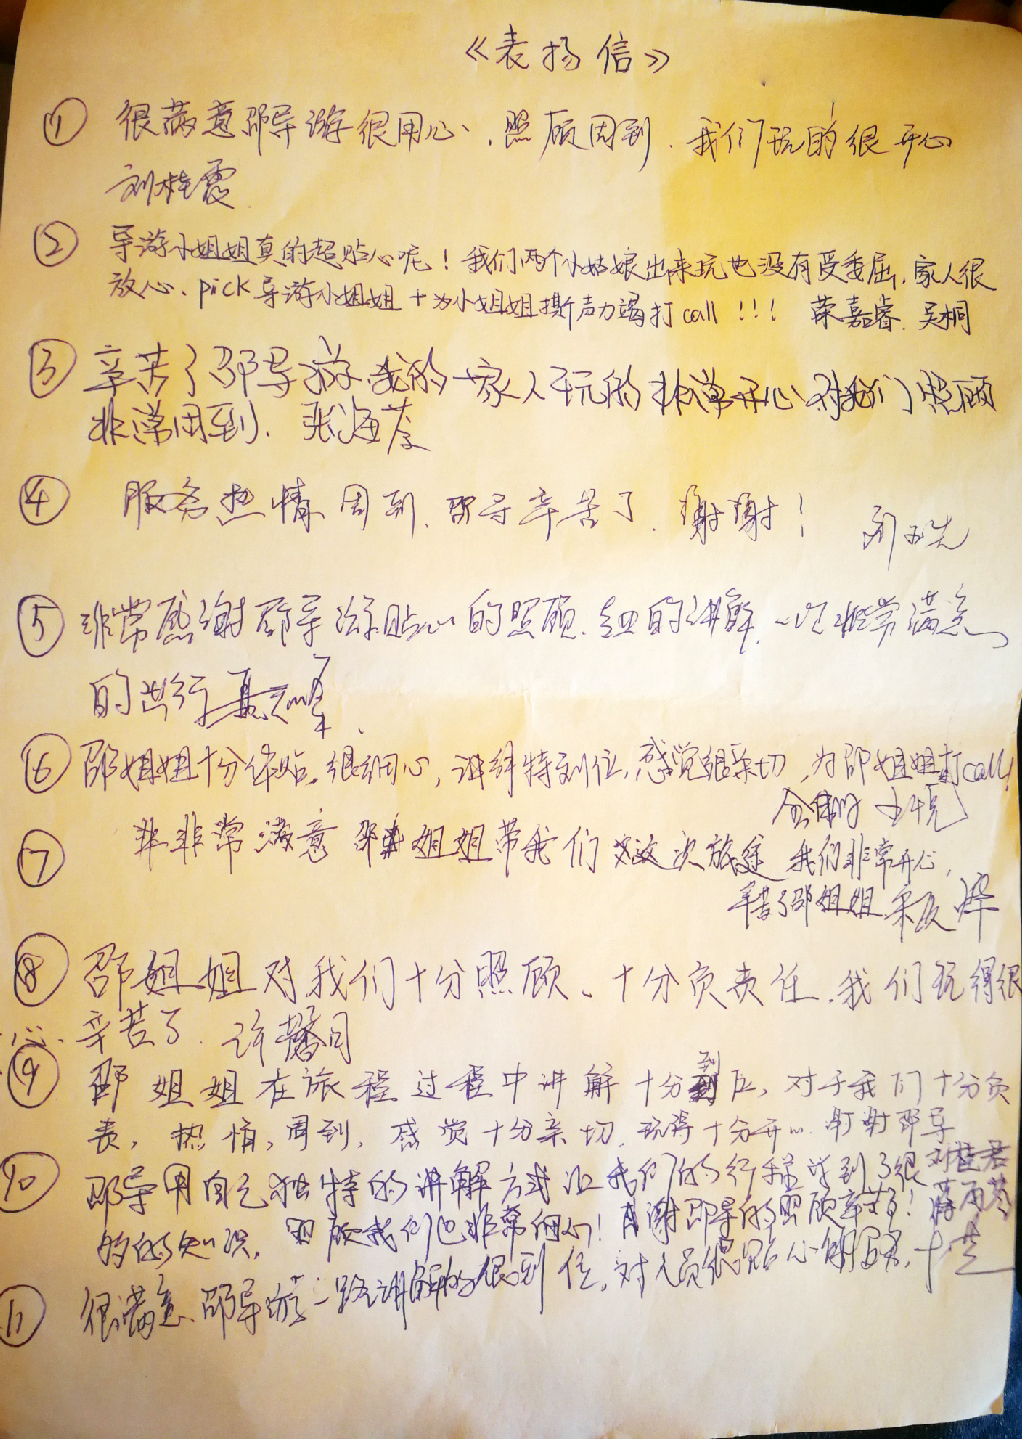 《表扬信》
① 很满意邵导游很用心、照顾周到、我们玩的很开心
刘桂霞
② 导游小姐姐真的超贴心呢！我们两个小姑娘出来玩也没有受委屈、家人很
放心、pick 导游小姐姐 + 为小姐姐撕声力竭打call！！！ 荣嘉睿 吴桐
③ 辛苦了邵导游 我的一家人玩的非常开心 对我们照顾
非常周到、张海苓
④ 服务热情 周到、邵导辛苦了、谢谢！
⑤ 非常感谢邵导游贴心的照顾、的讲解、一次非常满意
的出行
⑥ 邵姐姐十分体贴、很细心、讲解特到位、感觉很亲切、为邵姐姐打call！
⑦ 非非常满意 邵姐姐带我们这次旅途 我们非常开心，
辛苦了邵姐姐
⑧ 邵姐姐对我们十分照顾、十分负责任、我们玩得很
心、辛苦了、许馨月
⑨ 邵姐姐在旅程过程中讲解十分到位，对于我们十分负
责，热情，周到，感觉十分亲切，玩得十分开心 谢谢邵导
⑩ 邵导用自己独特的讲解方式让我们的行程学到了很 刘桂君
多的知识，照顾我们也非常细心！感谢邵导的照顾辛苦了！
⑪ 很满意、邵导游一路讲解的很到位，对人员很贴心